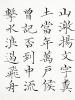 山激揚文字糞
土當年萬戶侯
曾記否到中流
擊水浪遏飛舟